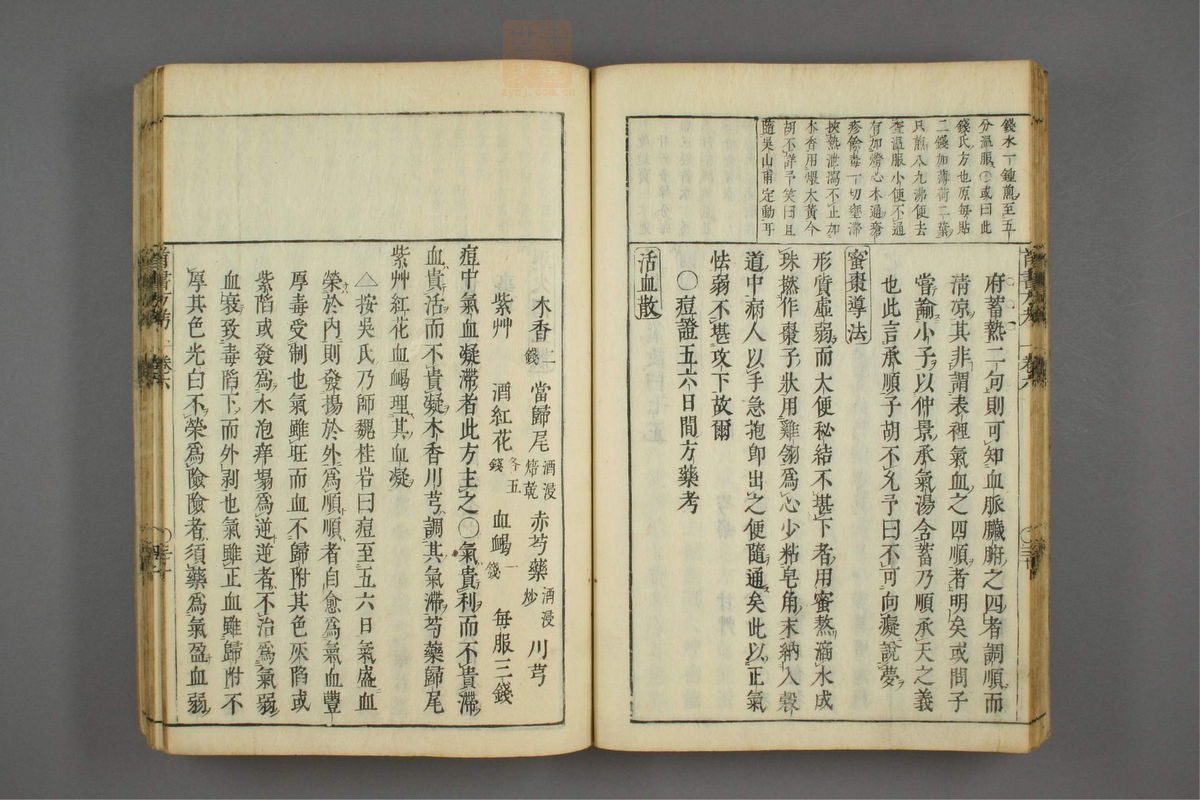 錢水一鍾煎至五
分溫服○或曰此
錢氏方也原每貼
二錢加薄荷二葉
只煎八九沸便去
查溫服小便不通
有加燈心木通瘡
疹餘毒一切壅滯
挾熱泄瀉不止加
木香用煨大黃今
胡不詳予笑曰且
隨吳山甫定動耳
府蓄熱二句則可知血脈臟腑之四者調順而
清凉其非謂表裡氣血之四順者明矣或問子
嘗諭小子以仲景承氣湯含蓄乃順承天之義
也此言承順子胡不允予曰不可向癡說夢
蜜棗導法
形質虛弱而大便秘結不甚下者用蜜熬滴水成
珠撚作棗子狀用雞翎爲心少粘皂角末納入穀
道中病人以手急抱卽出之便隨通矣此以正氣
怯弱不堪攻下故爾
○痘證五六日間方藥考
活血散
木香二錢 當歸尾酒浸焙乾 赤芍藥酒浸炒 川芎
紫艸 酒紅花各五錢 血竭一錢 每服三錢
痘中氣血凝滯者此方主之○氣貴利而不貴滯
血貴活而不貴凝木香川芎調其氣滯芍藥歸尾
紫艸紅花血竭理其血凝
△按吳氏乃師魏桂岩曰痘至五六日氣盛血
榮於內則發揚於外爲順順者自愈爲氣血豐
厚毒受制也氣雖旺而血不歸附其色灰陷或
紫陷或發爲水泡痒塌爲逆逆者不治爲氣弱
血衰致毒陷下而外剥也氣雖正血雖歸附不
厚其色光白不榮爲險險者須藥爲氣盈血弱